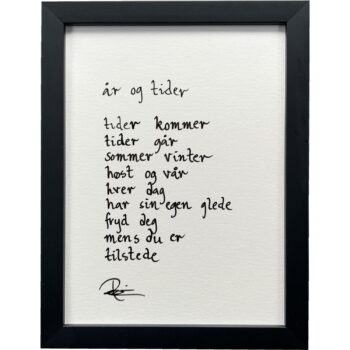 år og tider
tider kommer
tider går
sommer vinter
høst og vår
hver dag
har sin egen glede
fryd deg
mens du er
tilstede